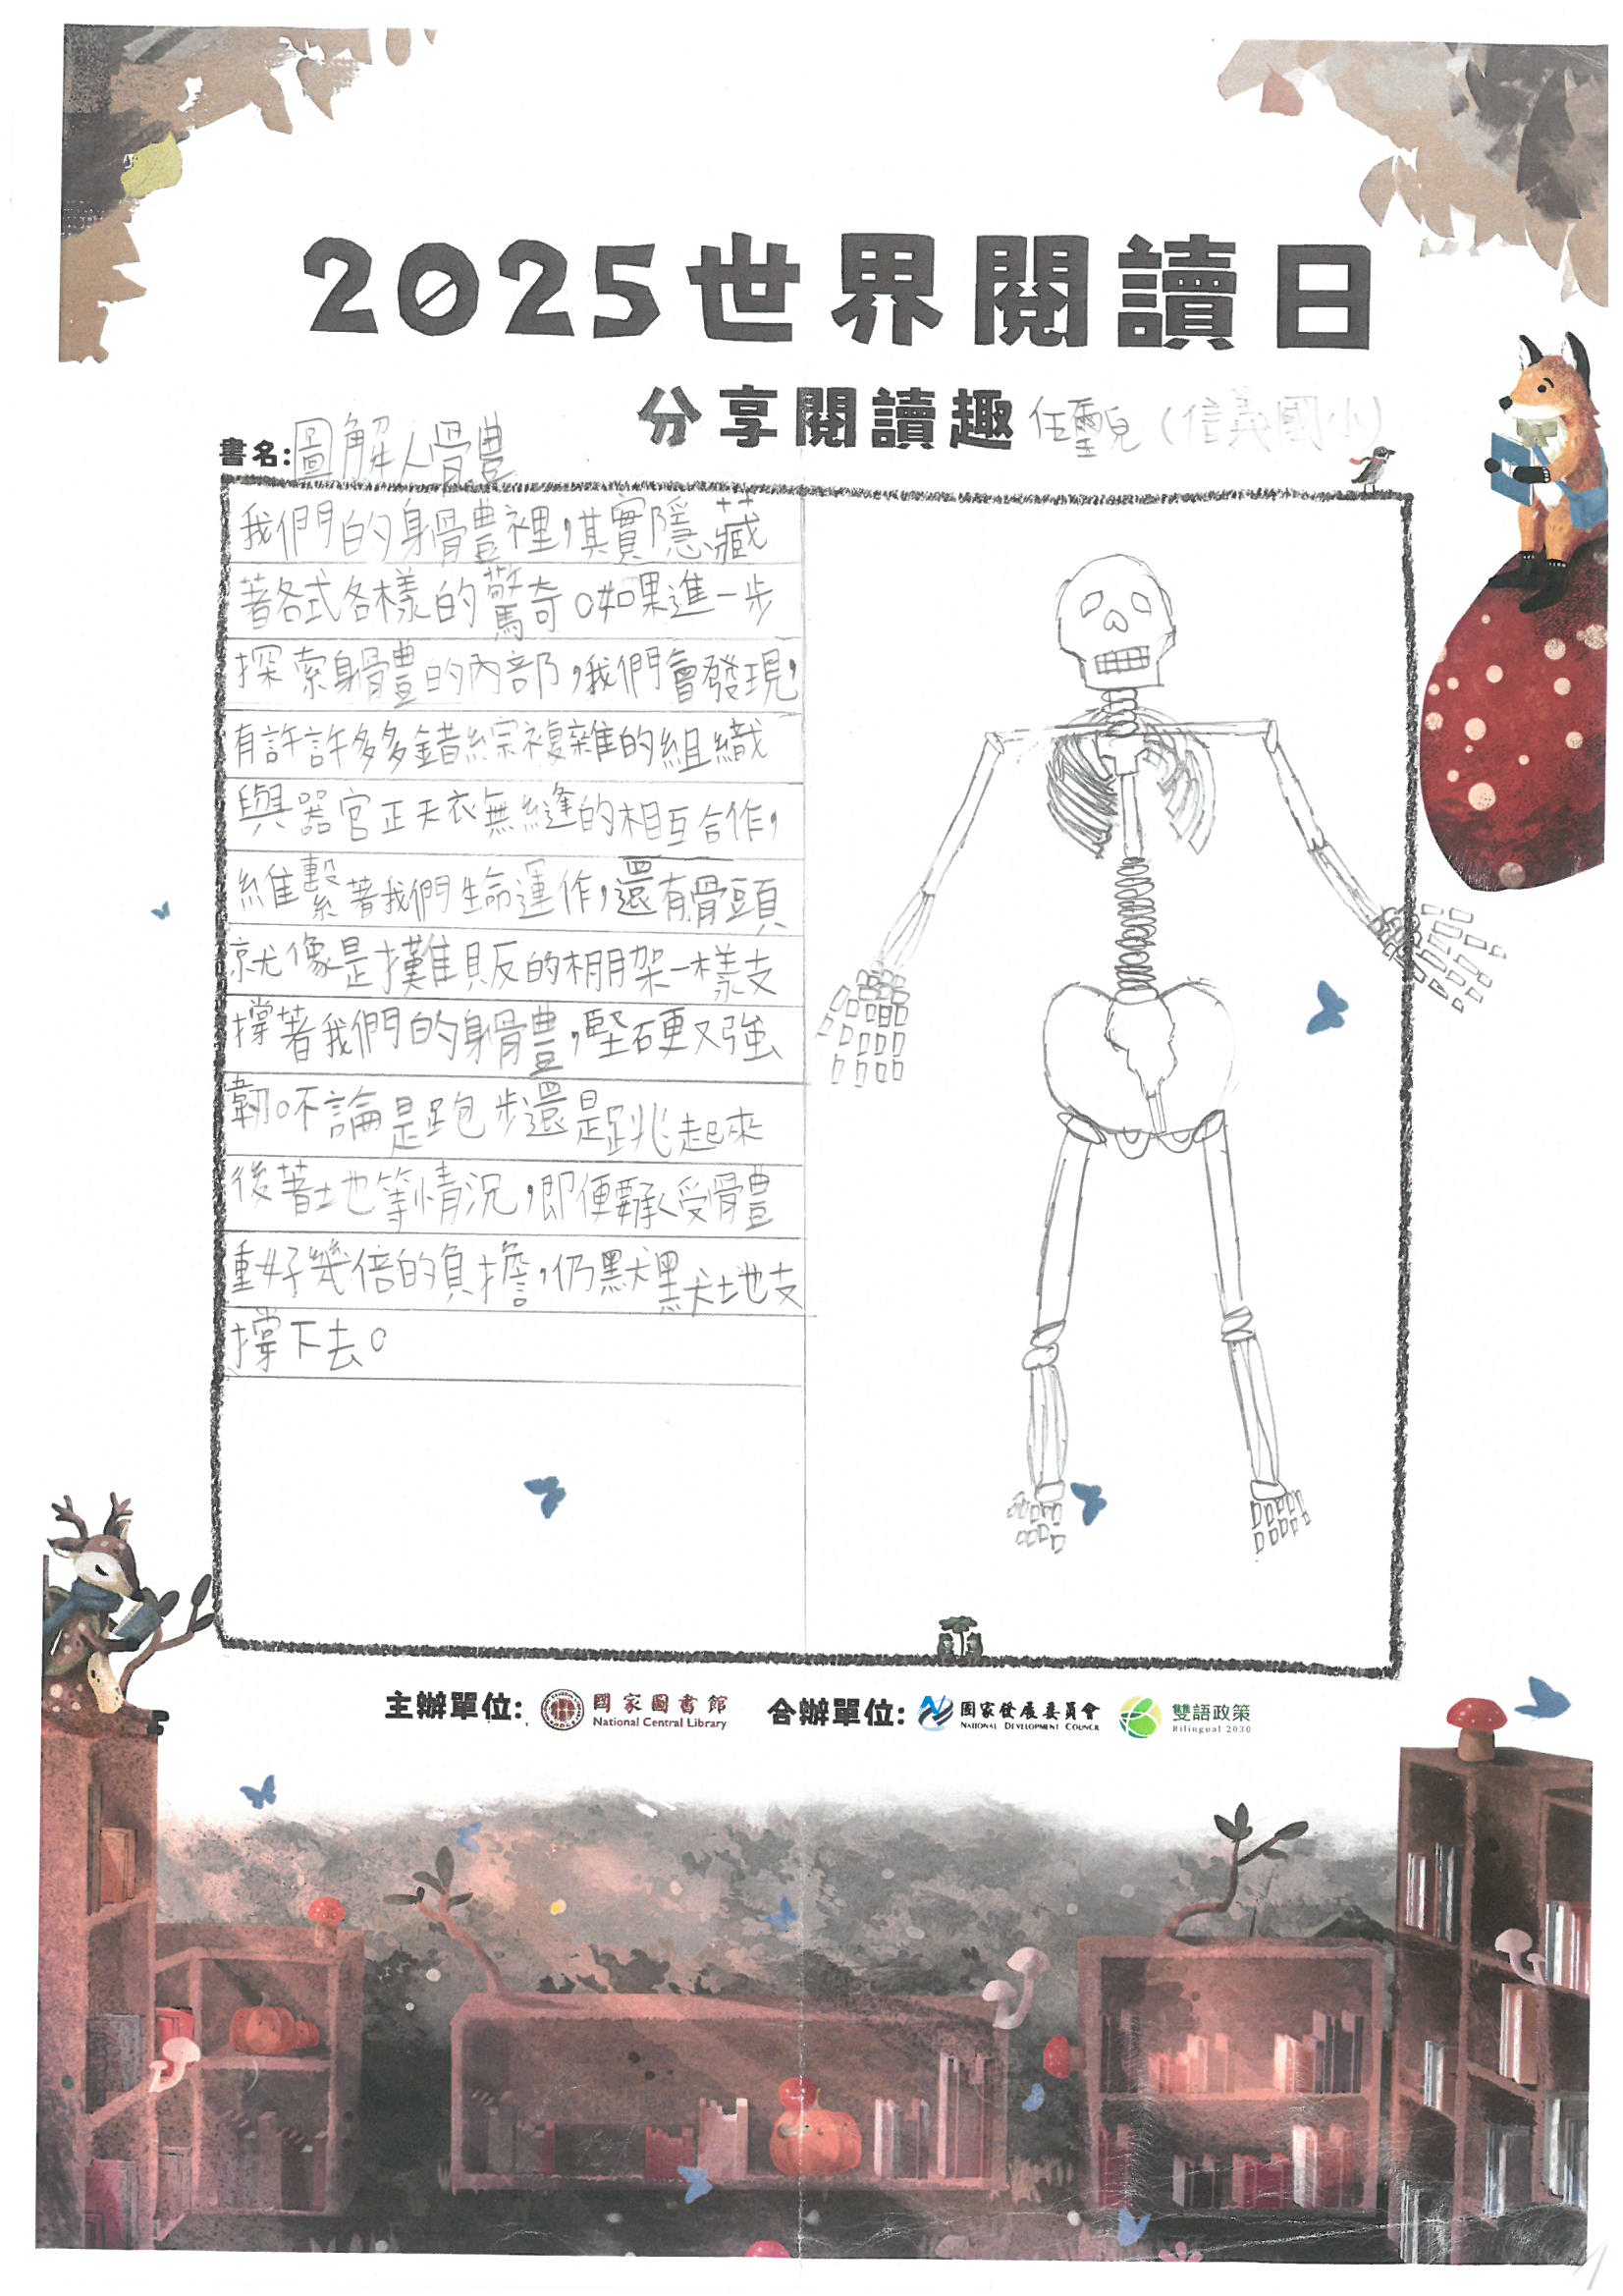 2025世界閱讀日
分享閱讀趣 任璽兒(信義國小)
書名:圖解人體
我們的身體裡,其實隱藏
著各式各樣的驚奇。如果進一步
探索身體的內部,我們會發現,
有許許多多錯綜複雜的組織
與器官正天衣無縫的相互合作,
維繫著我們生命運作,還有骨頭
就像是攤販的棚架一樣支
撐著我們的身體,堅硬又強
韌。不論是跑步還是跳起來
後著地等情況,即便要承受體
重好幾倍的負擔,仍默默地支
撐下去。
主辦單位: 國家圖書館 National Central Library 合辦單位: 國家發展委員會 National Development Council 雙語政策 Bilingual 2030